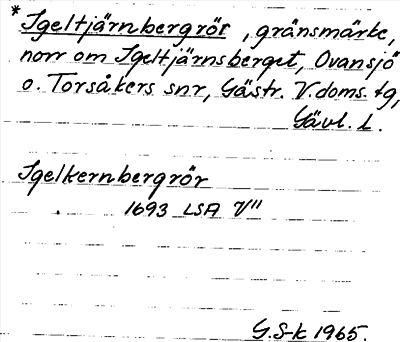 * Igeltjärnbergrör, gränsmärke,
norr om Igeltjärnsberget, Ovansjö
o. Torsåkers snr, Gästr. V. doms. tg,
Gävl. l.
Igelkernbergrör
1693 LSA V"
G.S-k 1965.